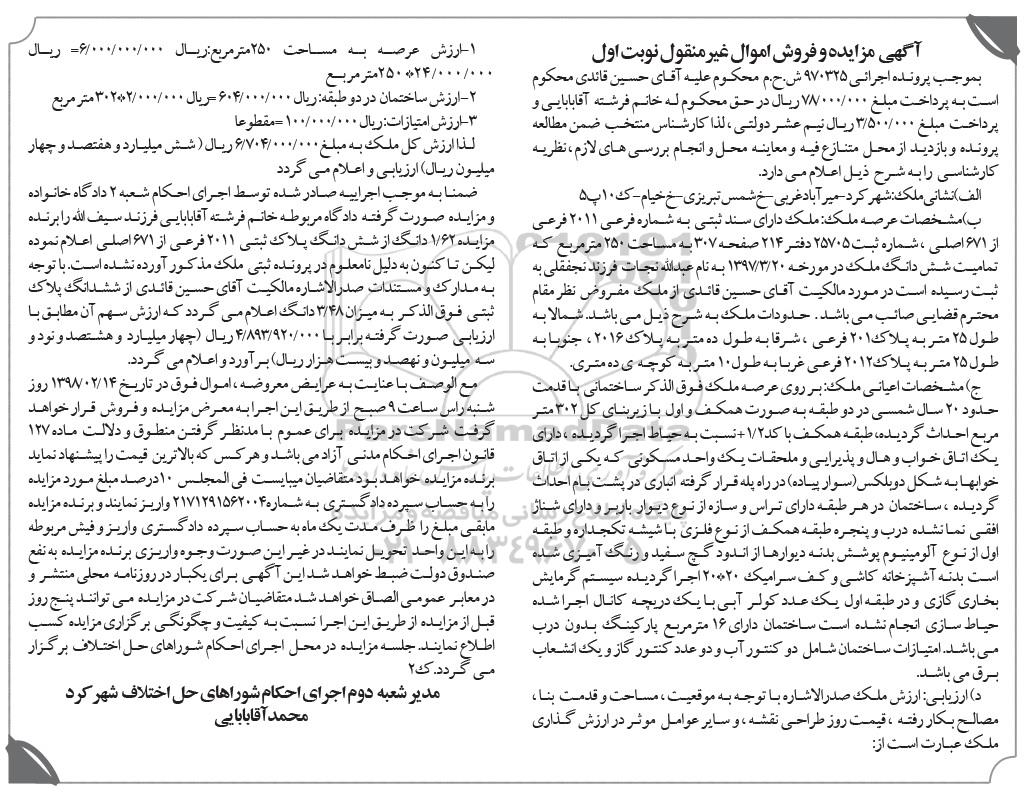 آگهی مزایده و فروش اموال غیر منقول نوبت اول
بموجب پرونده اجرائی ۹۷۰۳۲۵ ش.ح.م محکوم علیه آقای حسین قائدی محکوم
است به پرداخت مبلغ ۷۸/۰۰۰/۰۰۰ ریال در حق محکوم له خانم فرشته آقابابایی و
پرداخت مبلغ ۳/۵۰۰/۰۰۰ ریال نیم عشر دولتی ، لذا کارشناس منتخب ضمن مطالعه
پرونده و بازدید از محل متنازع فیه و معاینه محل و انجام بررسی های لازم ، نظریه
کارشناسی را به شرح ذیل اعلام می دارد.
الف)نشانی ملک:شهر کرد-میر آباد غربی-خ شمس تبریزی-خ خیام-ک۱۰پ۵
ب)مشخصات عرصه ملک: ملک دارای سند ثبتی به شماره فرعی ۲۰۱۱ فرعی
از ۶۷۱ اصلی ، شماره ثبت ۲۵۷۰۵ دفتر ۲۱۴ صفحه ۳۰۷ به مساحت ۲۵۰ مترمربع که
تمامیت شش دانگ ملک در مورخه ۱۳۹۷/۳/۲۰ به نام عبدالله نجات فرزند نجفقلی به
ثبت رسیده است در مورد مالکیت آقای حسین قائدی از ملک مفروض نظر مقام
محترم قضایی صائب می باشد . حدودات ملک به شرح ذیل می باشد. شمالا به
طول ۲۵ متر به پلاک۲۰۱ فرعی ، شرقا به طول ده متر به پلاک ۲۰۱۶ ، جنوبا به
طول ۲۵ متر به پلاک ۲۰۱۲ فرعی غربا به طول ۱۰ متر به کوچه ی ده متری.
ج) مشخصات اعیانی ملک: بر روی عرصه ملک فوق الذکر ساختمانی با قدمت
حدود ۲۰ سال شمسی در دو طبقه به صورت همکف و اول با زیربنای کل ۳۰۲ متر
مربع احداث گردیده، طبقه همکف با کد۱/۲+نسبت به حیاط اجرا گردیده ، دارای
یک اتاق خواب و هال و پذیرایی و ملحقات یک واحد مسکونی که یکی از اتاق
خوابها به شکل دوبلکس(سوار پیاده) در راه پله قرار گرفته انباری در پشت بام احداث
گردیده ، ساختمان در هر طبقه دارای تراس و سازه از نوع دیوار باربر و دارای شناژ
افقی نما نشده درب و پنجره طبقه همکف از نوع فلزی با شیشه تکجداره و طبقه
اول از نوع آلومینیوم پوشش بدنه دیوارها از اندود گچ سفید و رنگ آمیزی شده
است بدنه آشپزخانه کاشی و کف سرامیک ۲۰*۲۰ اجرا گردیده سیستم گرمایش
بخاری گازی و در طبقه اول یک عدد کولر آبی با یک دریچه کانال اجرا شده
حیاط سازی انجام نشده است ساختمان دارای ۱۶ مترمربع پارکینگ بدون درب
می باشد. امتیازات ساختمان شامل دو کنتور آب و دو عدد کنتور گاز و یک انشعاب
برق می باشد.
د) ارزیابی: ارزش ملک صدرالاشاره با توجه به موقعیت ، مساحت و قدمت بنا ،
مصالح بکار رفته ، قیمت روز طراحی نقشه ، و سایر عوامل موثر در ارزش گذاری
ملک عبارت است از:
۱-ارزش عرصه به مساحت ۲۵۰مترمربع:ریال ۶/۰۰۰/۰۰۰/۰۰۰= ریال
۲۴/۰۰۰/۰۰۰*۲۵۰ متر مربع
۲-ارزش ساختمان در دو طبقه: ریال ۶۰۴/۰۰۰/۰۰۰ =ریال ۲/۰۰۰/۰۰۰*۳۰۲ متر مربع
۳-ارزش امتیازات: ریال ۱۰۰/۰۰۰/۰۰۰ =مقطوعا
لذا ارزش کل ملک به مبلغ ۶/۷۰۴/۰۰۰/۰۰۰ ریال ( شش میلیارد و هفتصد و چهار
میلیون ریال) ارزیابی و اعلام می گردد
ضمنا به موجب اجراییه صادر شده توسط اجرای احکام شعبه ۲ دادگاه خانواده
و مزایده صورت گرفته دادگاه مربوطه خانم فرشته آقابابایی فرزند سیف الله را برنده
مزایده ۱/۶۲ دانگ از شش دانگ پلاک ثبتی ۲۰۱۱ فرعی از ۶۷۱ اصلی اعلام نموده
لیکن تا کنون به دلیل نامعلوم در پرونده ثبتی ملک مذکور آورده نشده است. با توجه
به مدارک و مستندات صدرالاشاره مالکیت آقای حسین قائدی از ششدانگ پلاک
ثبتی فوق الذکر به میزان ۳/۴۸ دانگ اعلام می گردد که ارزش سهم آن مطابق با
ارزیابی صورت گرفته برابر با ۴/۸۹۳/۹۲۰/۰۰۰ ریال (چهار میلیارد و هشتصد و نود و
سه میلیون و نهصد و بیست هزار ریال) بر آورد و اعلام می گردد.
مع الوصف با عنایت به عرایض معروضه ، اموال فوق در تاریخ ۱۳۹۸/۰۲/۱۴ روز
شنبه راس ساعت ۹ صبح از طریق این اجرا به معرض مزایده و فروش قرار خواهد
گرفت شرکت در مزایده برای عموم با مدنظر گرفتن منطوق و دلالت ماده ۱۲۷
قانون اجرای احکام مدنی آزاد می باشد و هر کس که بالاترین قیمت را پیشنهاد نماید
برنده مزایده خواهد بود متقاضیان میبایست فی المجلس ۱۰درصد مبلغ مورد مزایده
را به حساب سپرده دادگستری به شماره ۲۱۷۱۲۹۱۵۶۲۰۰۴ واریز نمایند و برنده مزایده
مابقی مبلغ را ظرف مدت یک ماه به حساب سپرده دادگستری واریز و فیش مربوطه
را به این واحد تحویل نمایند در غیر این صورت وجوه واریزی برنده مزایده به نفع
صندوق دولت ضبط خواهد شد این آگهی برای یکبار در روزنامه محلی منتشر و
در معابر عمومی الصاق خواهد شد متقاضیان شرکت در مزایده می توانند پنج روز
قبل از مزایده از طریق این اجرا نسبت به کیفیت و چگونگی برگزاری مزایده کسب
اطلاع نمایند. جلسه مزایده در محل اجرای احکام شوراهای حل اختلاف بر گزار
می گردد.ک۲
مدیر شعبه دوم اجرای احکام شوراهای حل اختلاف شهر کرد
محمد آقابابایی
ParsNamadData
۰۲۱-۸۸۳۴۹۶۷۰-۵